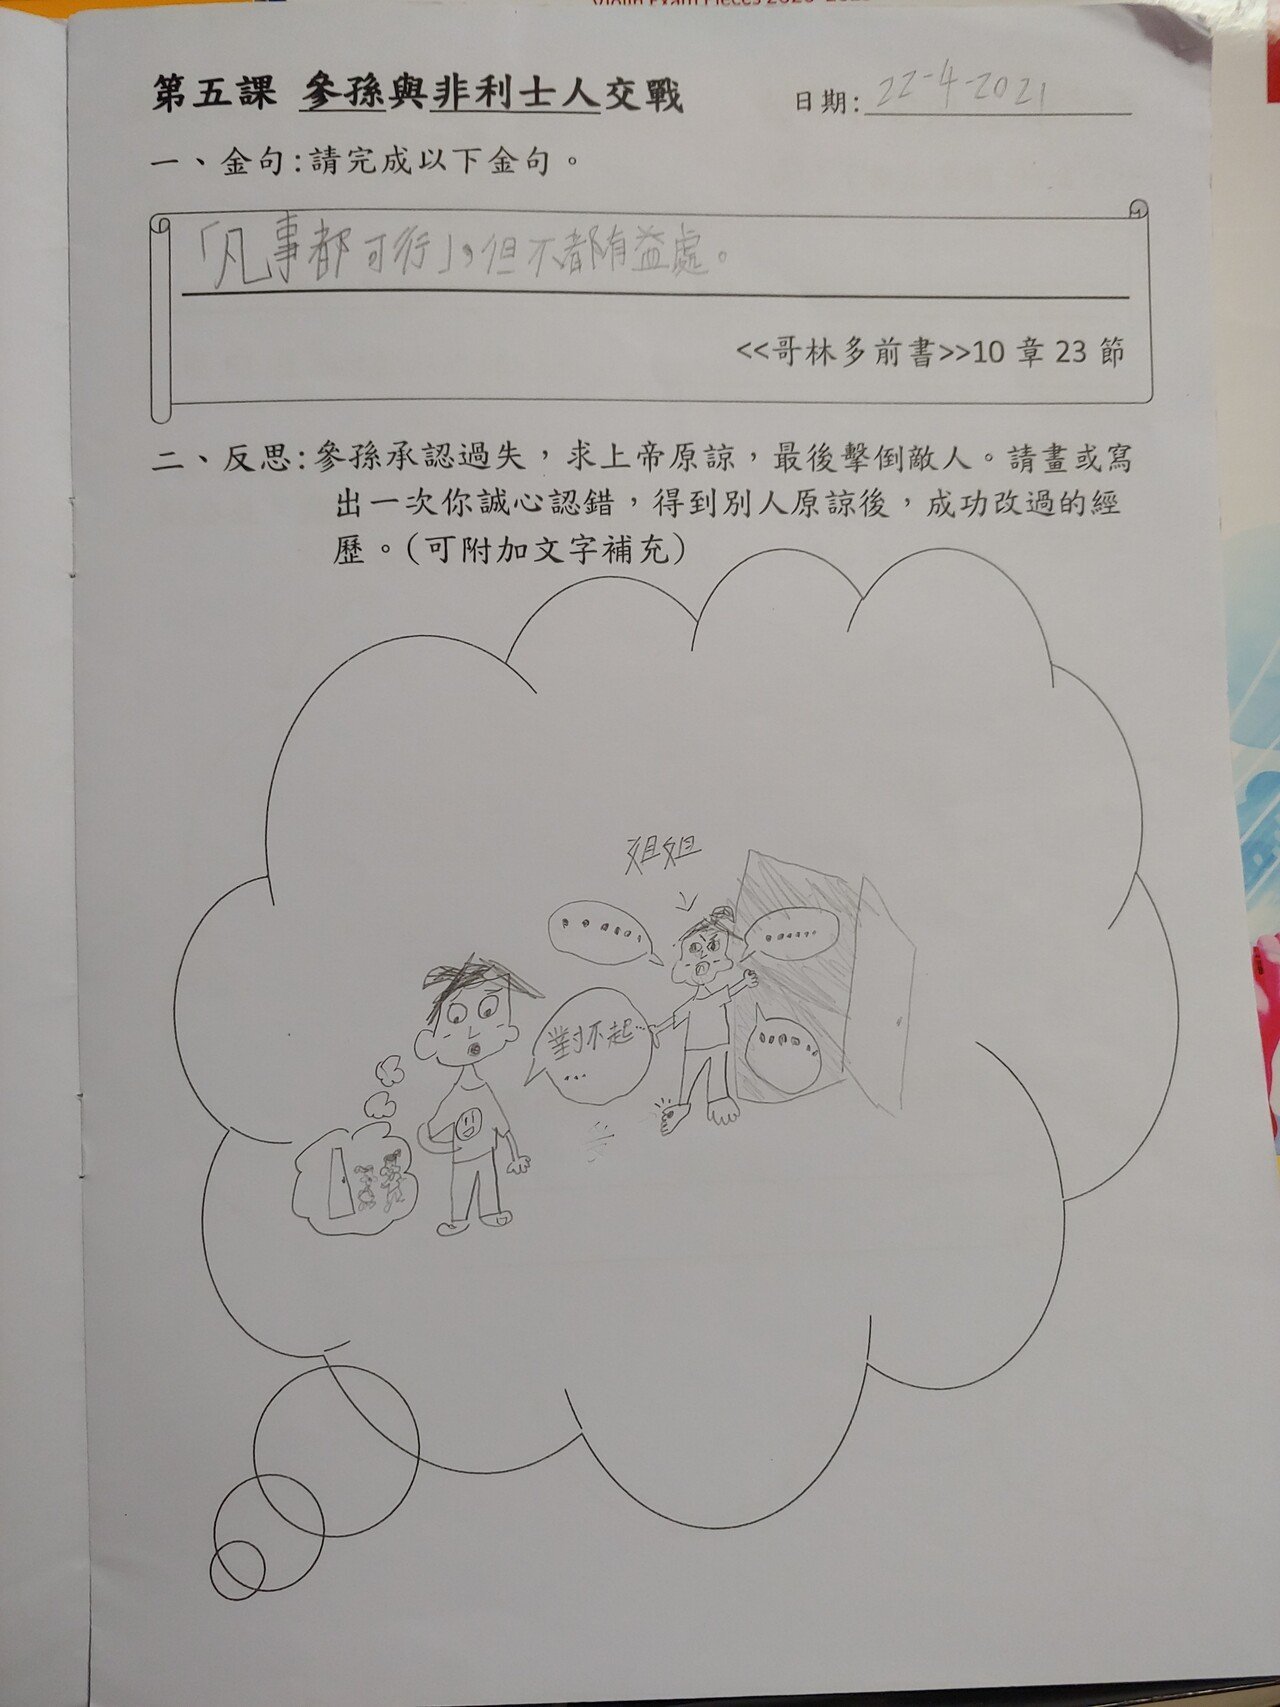 Violin Exam Pieces 2020-2023
第五課 參孫與非利士人交戰
日期: 22-4-2021
一、金句:請完成以下金句。
「凡事都可行」,但不都有益處。
<<哥林多前書>>10 章 23 節
二、反思:參孫承認過失,求上帝原諒,最後擊倒敵人。請畫或寫
出一次你誠心認錯,得到別人原諒後,成功改過的經
歷。(可附加文字補充)
姐姐
......
......
對不起...
...
......